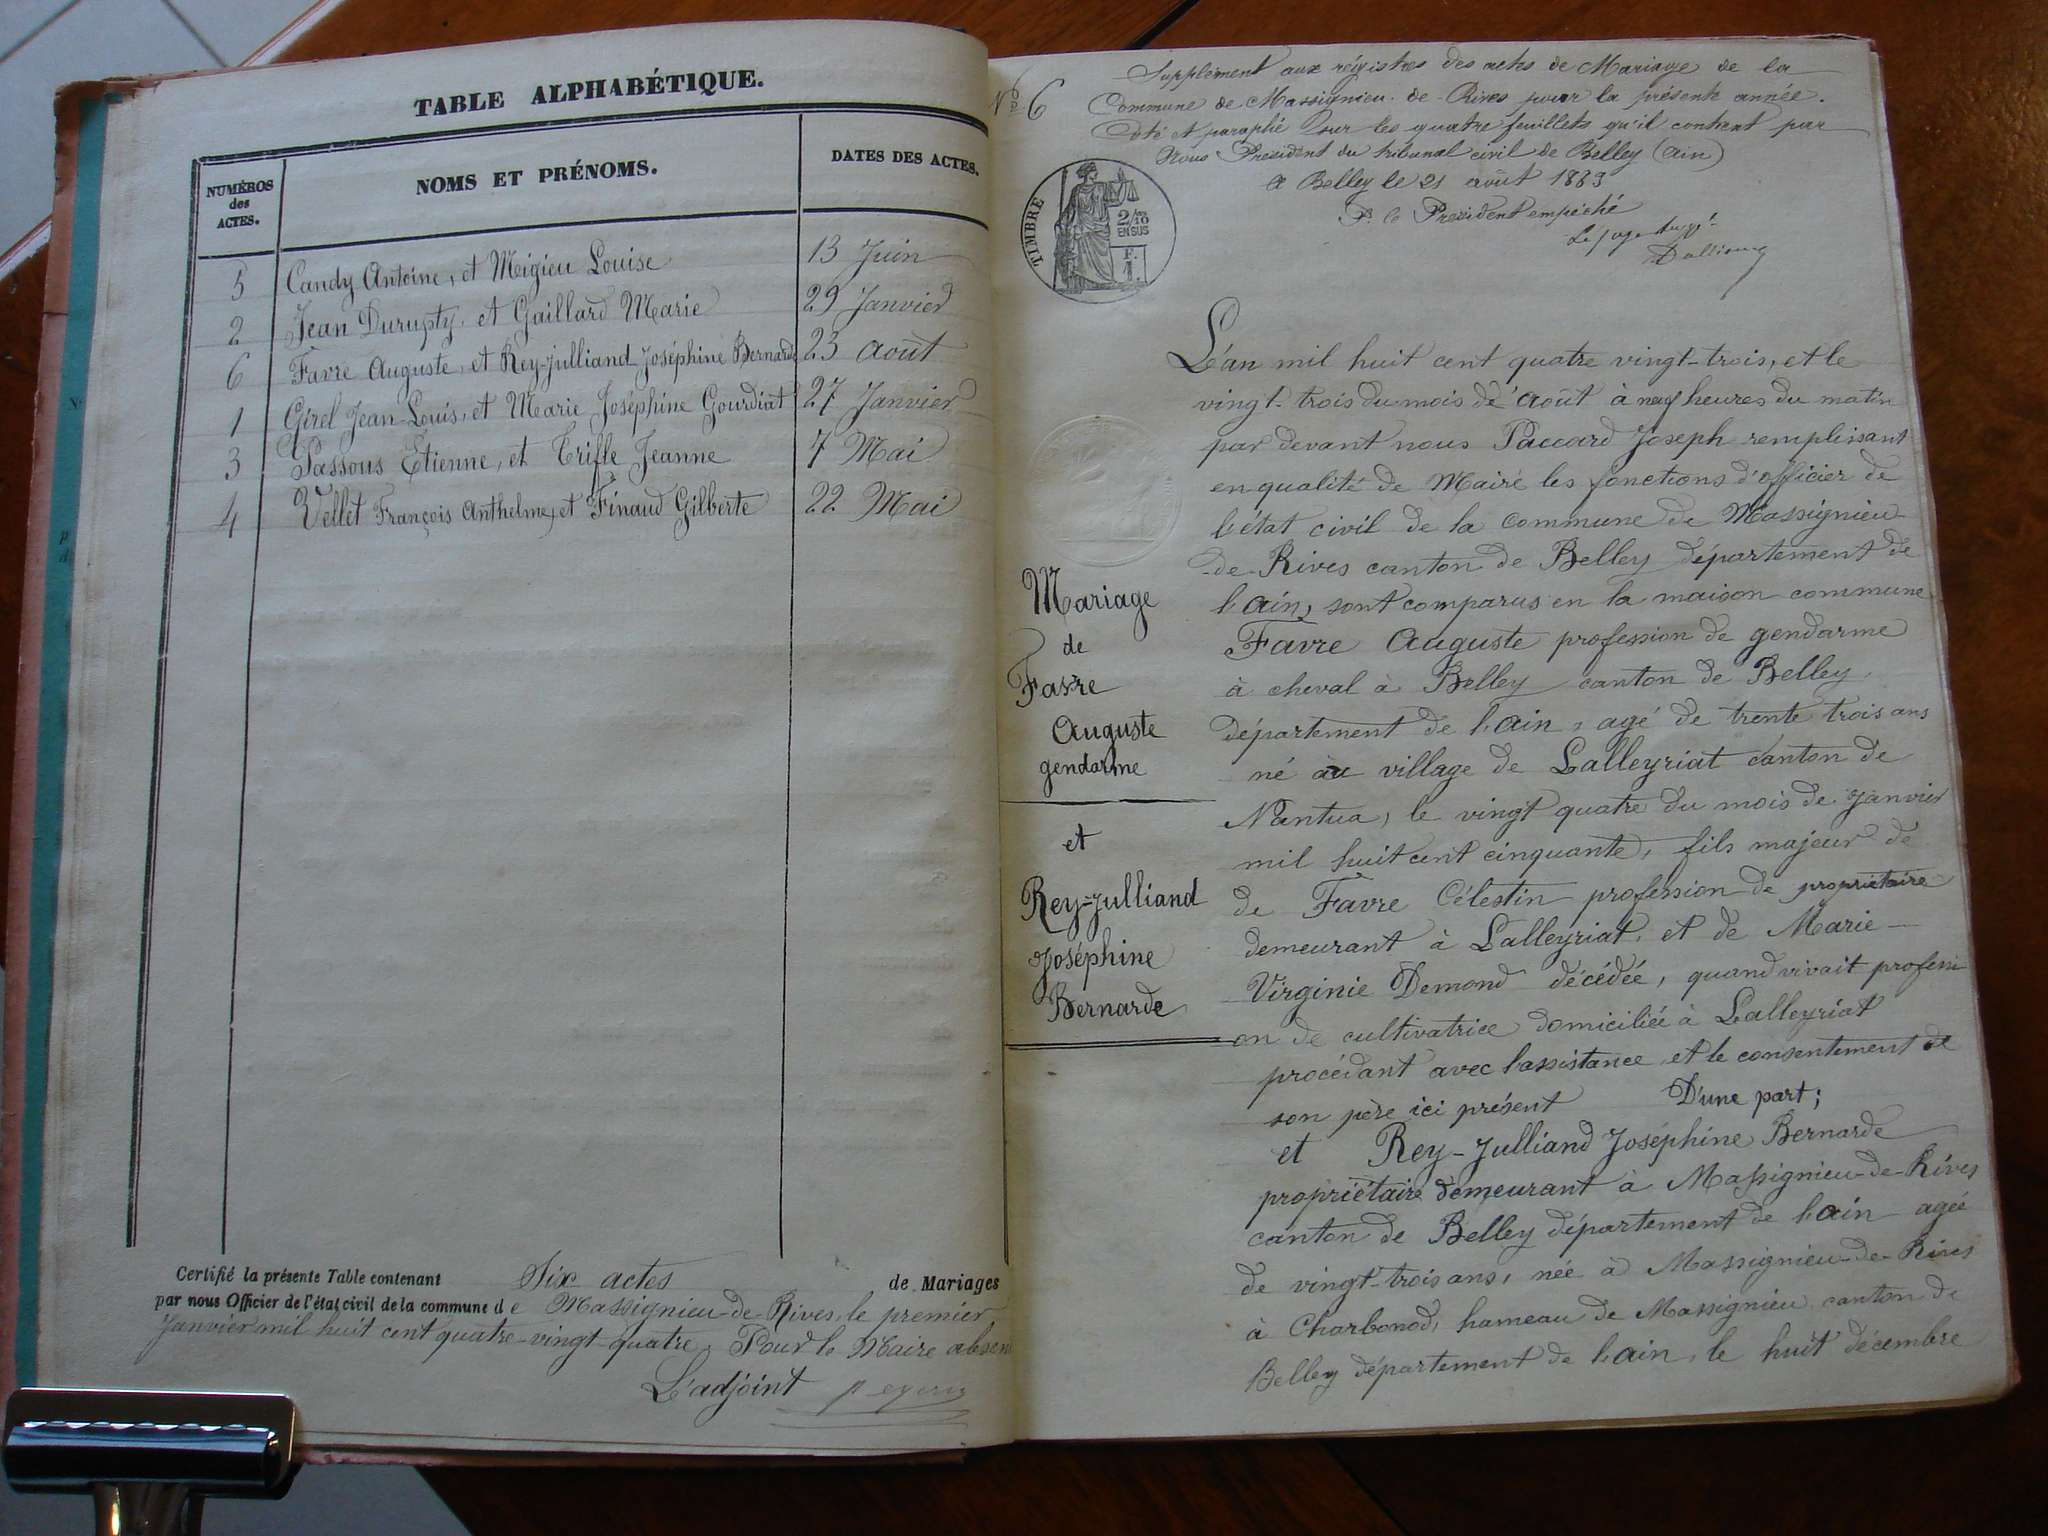 TABLE ALPHABÉTIQUE.
NUMÉROS des ACTES.
NOMS ET PRÉNOMS.
DATES DES ACTES.
5 Candy Antoine, et Migieu Louise 13 Juin
2 Jean Durupty, et Gaillard Marie 29 Janvier
6 Favre Auguste, et Rey-Julliand Joséphine Bernarde 23 août
1 Girel Jean-Louis, et Marie Joséphine Gourdiat 27 Janvier
3 Passous Etienne, et Trifle Jeanne 7 Mai
4 Vellet François Anthelme, et Finaud Gilberte 22 Mai
Certifié la présente Table contenant Six actes de Mariages
par nous Officier de l'état civil de la commune de Massignieu-de-Rives, le premier
Janvier mil huit cent quatre-vingt-quatre. Pour le Maire absent
L'adjoint
Nº 6
Supplément aux régistres des actes de Mariage de la
Commune de Massignieu-de-Rives pour la présente année.
Coté et paraphé sur les quatre feuillets qu'il contient par
Nous Président du tribunal civil de Belley (ain)
a Belley le 21 août 1883
Pr le President empêché
Le juge supt
TIMBRE
2/10
EN SUS
F.
1.
Mariage
de
Favre
Auguste
gendarme
et
Rey-Julliand
Joséphine
Bernarde
L'an mil huit cent quatre vingt-trois, et le
vingt-trois du mois de août à neuf heures du matin
par devant nous Paccard Joseph remplissant
en qualité de Maire les fonctions d'officier de
l'état civil de la commune de Massignieu
-de-Rives canton de Belley département de
l'ain, sont comparus en la maison commune
Favre Auguste profession de gendarme
à cheval à Belley canton de Belley,
département de l'ain, agé de trente trois ans
né au village de Lalleyriat canton de
Nantua, le vingt quatre du mois de Janvier
mil huit cent cinquante, fils majeur de
de Favre Célestin profession de propriétaire
demeurant à Lalleyriat, et de Marie
Virginie Demond décédée, quand vivait professi
on de cultivatrice domiciliée à Lalleyriat
procédant avec l'assistance et le consentement de
son père ici présent D'une part;
et Rey-Julliand Joséphine Bernarde
propriétaire demeurant à Massignieu-de-Rives
canton de Belley département de l'ain agée
de vingt-trois ans, née à Massignieu-de-Rives
à Charbonod, hameau de Massignieu canton de
Belley département de l'ain, le huit décembre